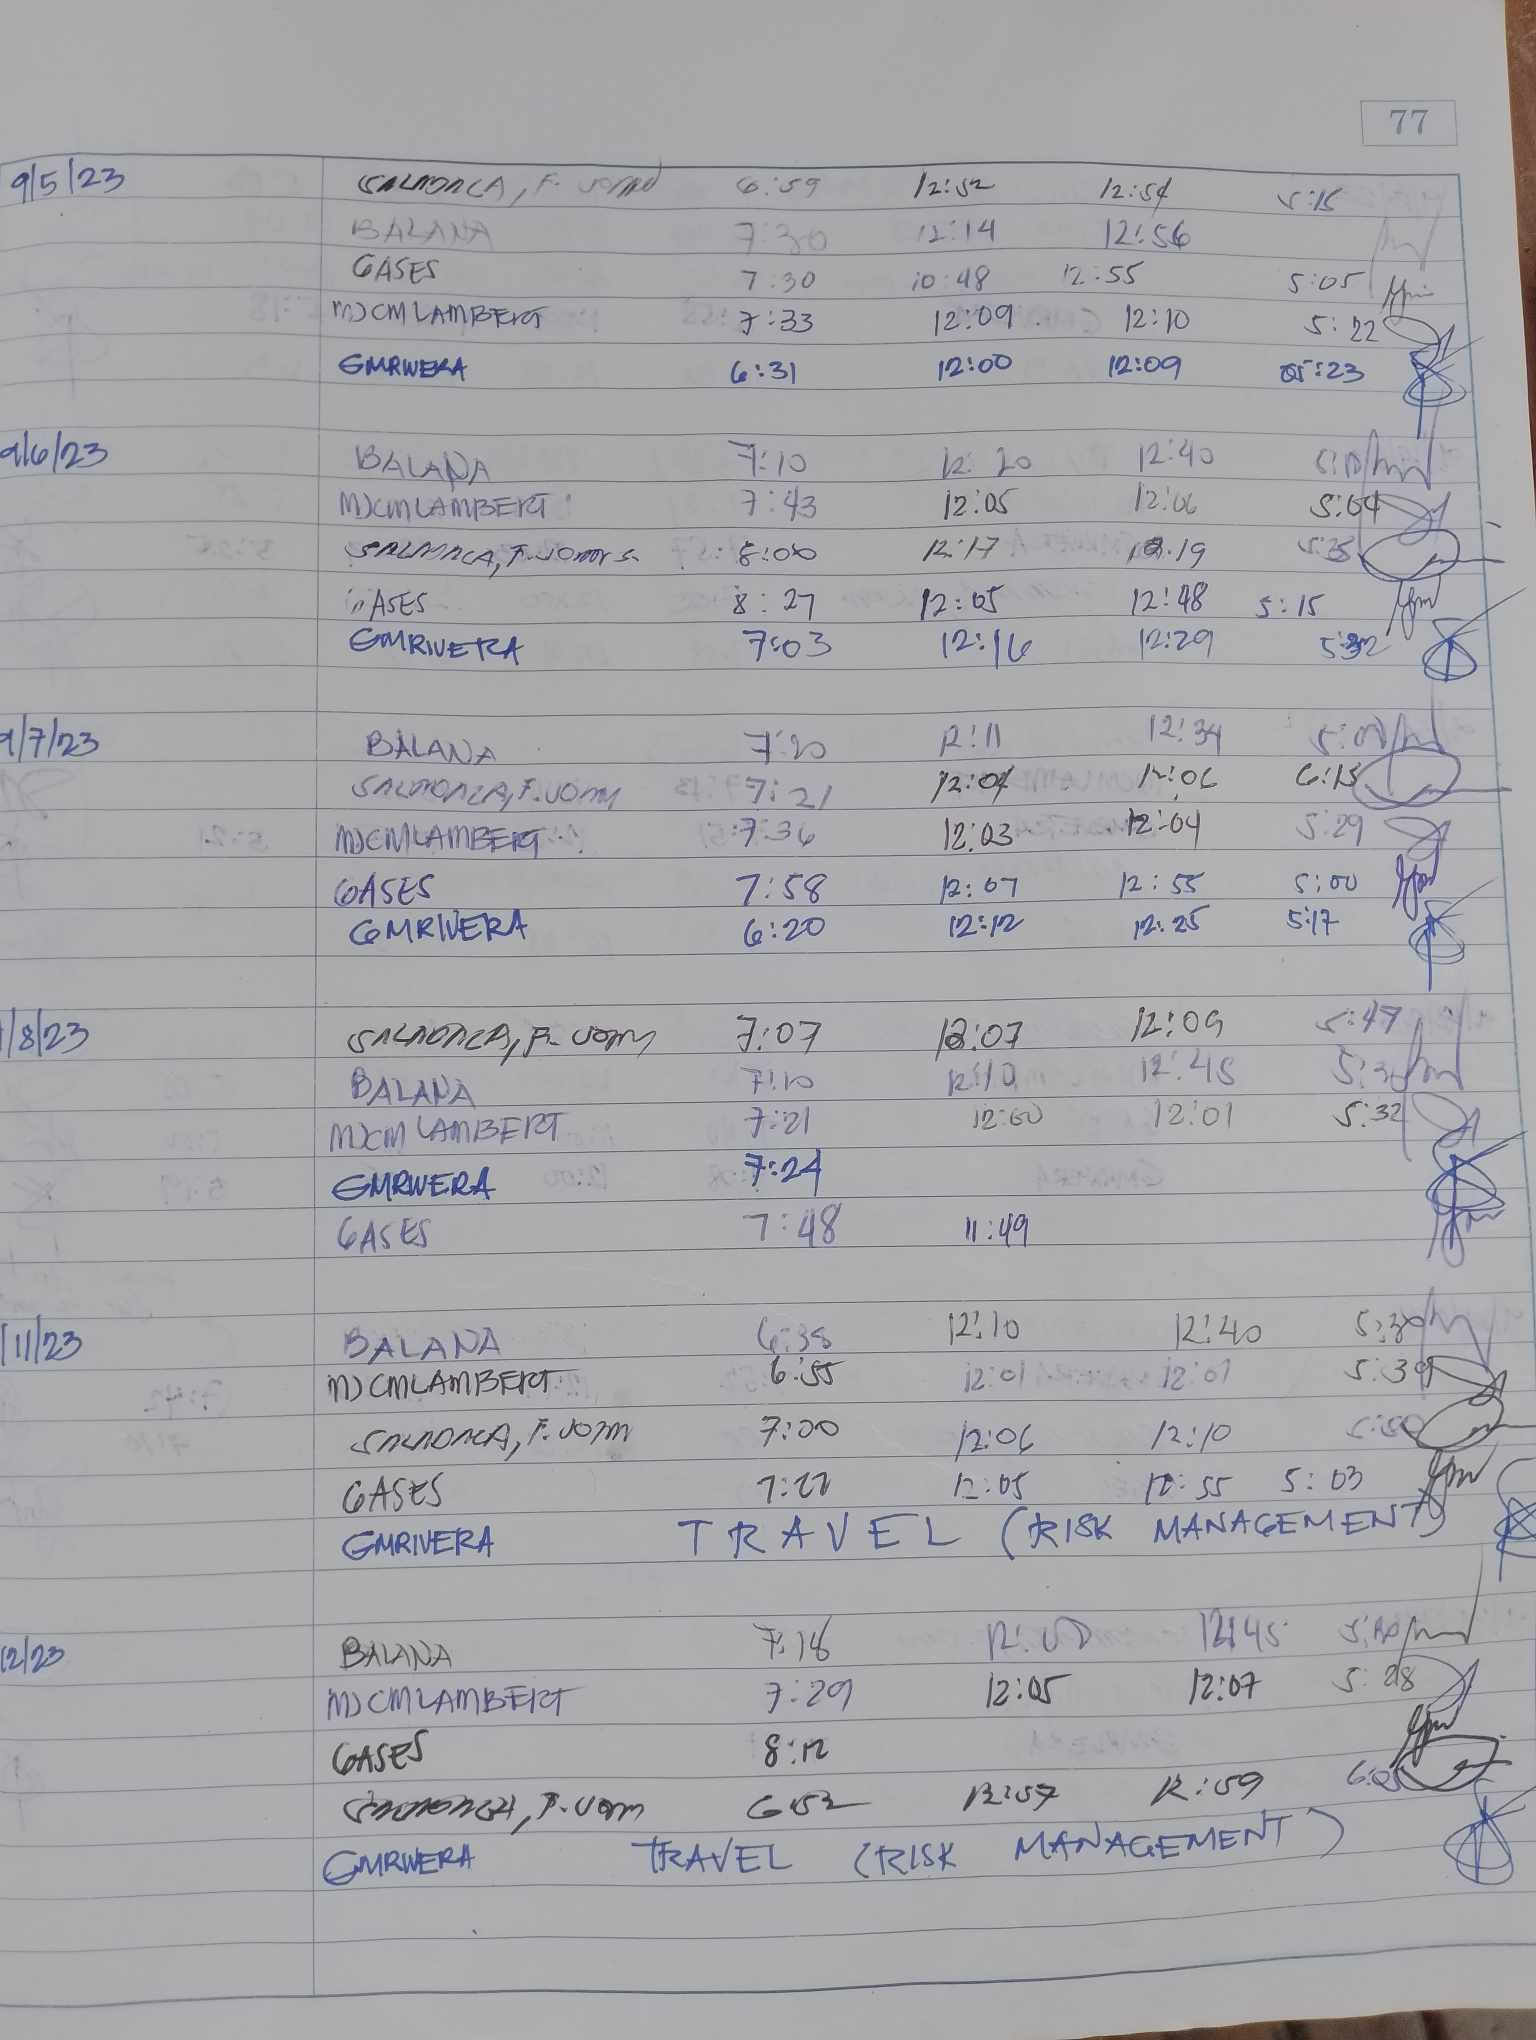 77
9/5/23 6:59 12:52 12:54 5:15
BALANA 7:30 12:14 12:56
GASES 7:30 10:48 12:55 5:05
MJCMLAMBERT 7:33 12:09 12:10 5:22
GMRIVERA 6:31 12:00 12:09 05:23
9/6/23 BALANA 7:10 12:20 12:40
MJCMLAMBERT 7:43 12:05 12:06 5:04
8:00 12:17 12:19 5:35
GASES 8:27 12:05 12:48 5:15
GMRIVERA 7:03 12:16 12:29 5:32
9/7/23 BALANA 7:20 12:11 12:34
7:21 12:04 12:06 6:15
MJCMLAMBERT 7:36 12:03 12:04 5:29
GASES 7:58 12:07 12:55 5:00
GMRIVERA 6:20 12:12 12:25 5:17
/8/23 7:07 12:07 12:09 5:47
BALANA 7:10 12:10 12:45
MJCMLAMBERT 7:21 12:00 12:01 5:32
GMRIVERA 7:24
GASES 7:48 11:49
/11/23 BALANA 6:38 12:10 12:40 5:30
MJCMLAMBERT 6:55 12:01 12:01 5:39
7:00 12:06 12:10
GASES 7:22 12:05 12:55 5:03
GMRIVERA TRAVEL (RISK MANAGEMENT)
12/23 BALANA 7:18 12:00 12:45
MJCMLAMBERT 7:29 12:05 12:07 5:28
GASES 8:12
6:52 12:57 12:59 6:05
GMRIVERA TRAVEL (RISK MANAGEMENT)